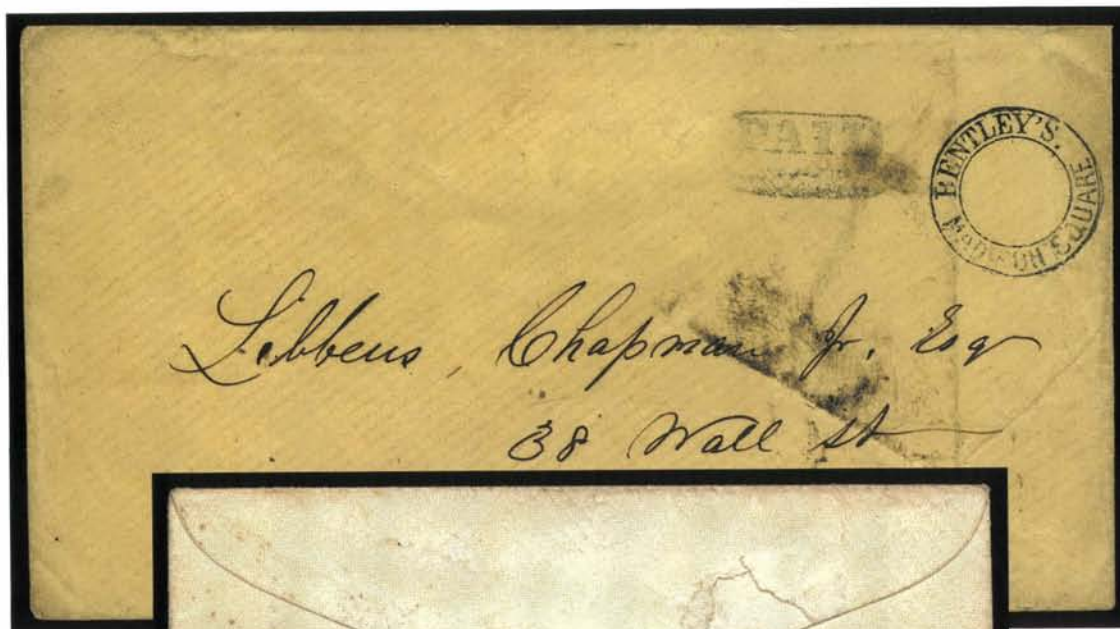 PAID
BENTLEY'S.
MADISON SQUARE
Lebbeus, Chapman Jr. Esq
38 Wall St